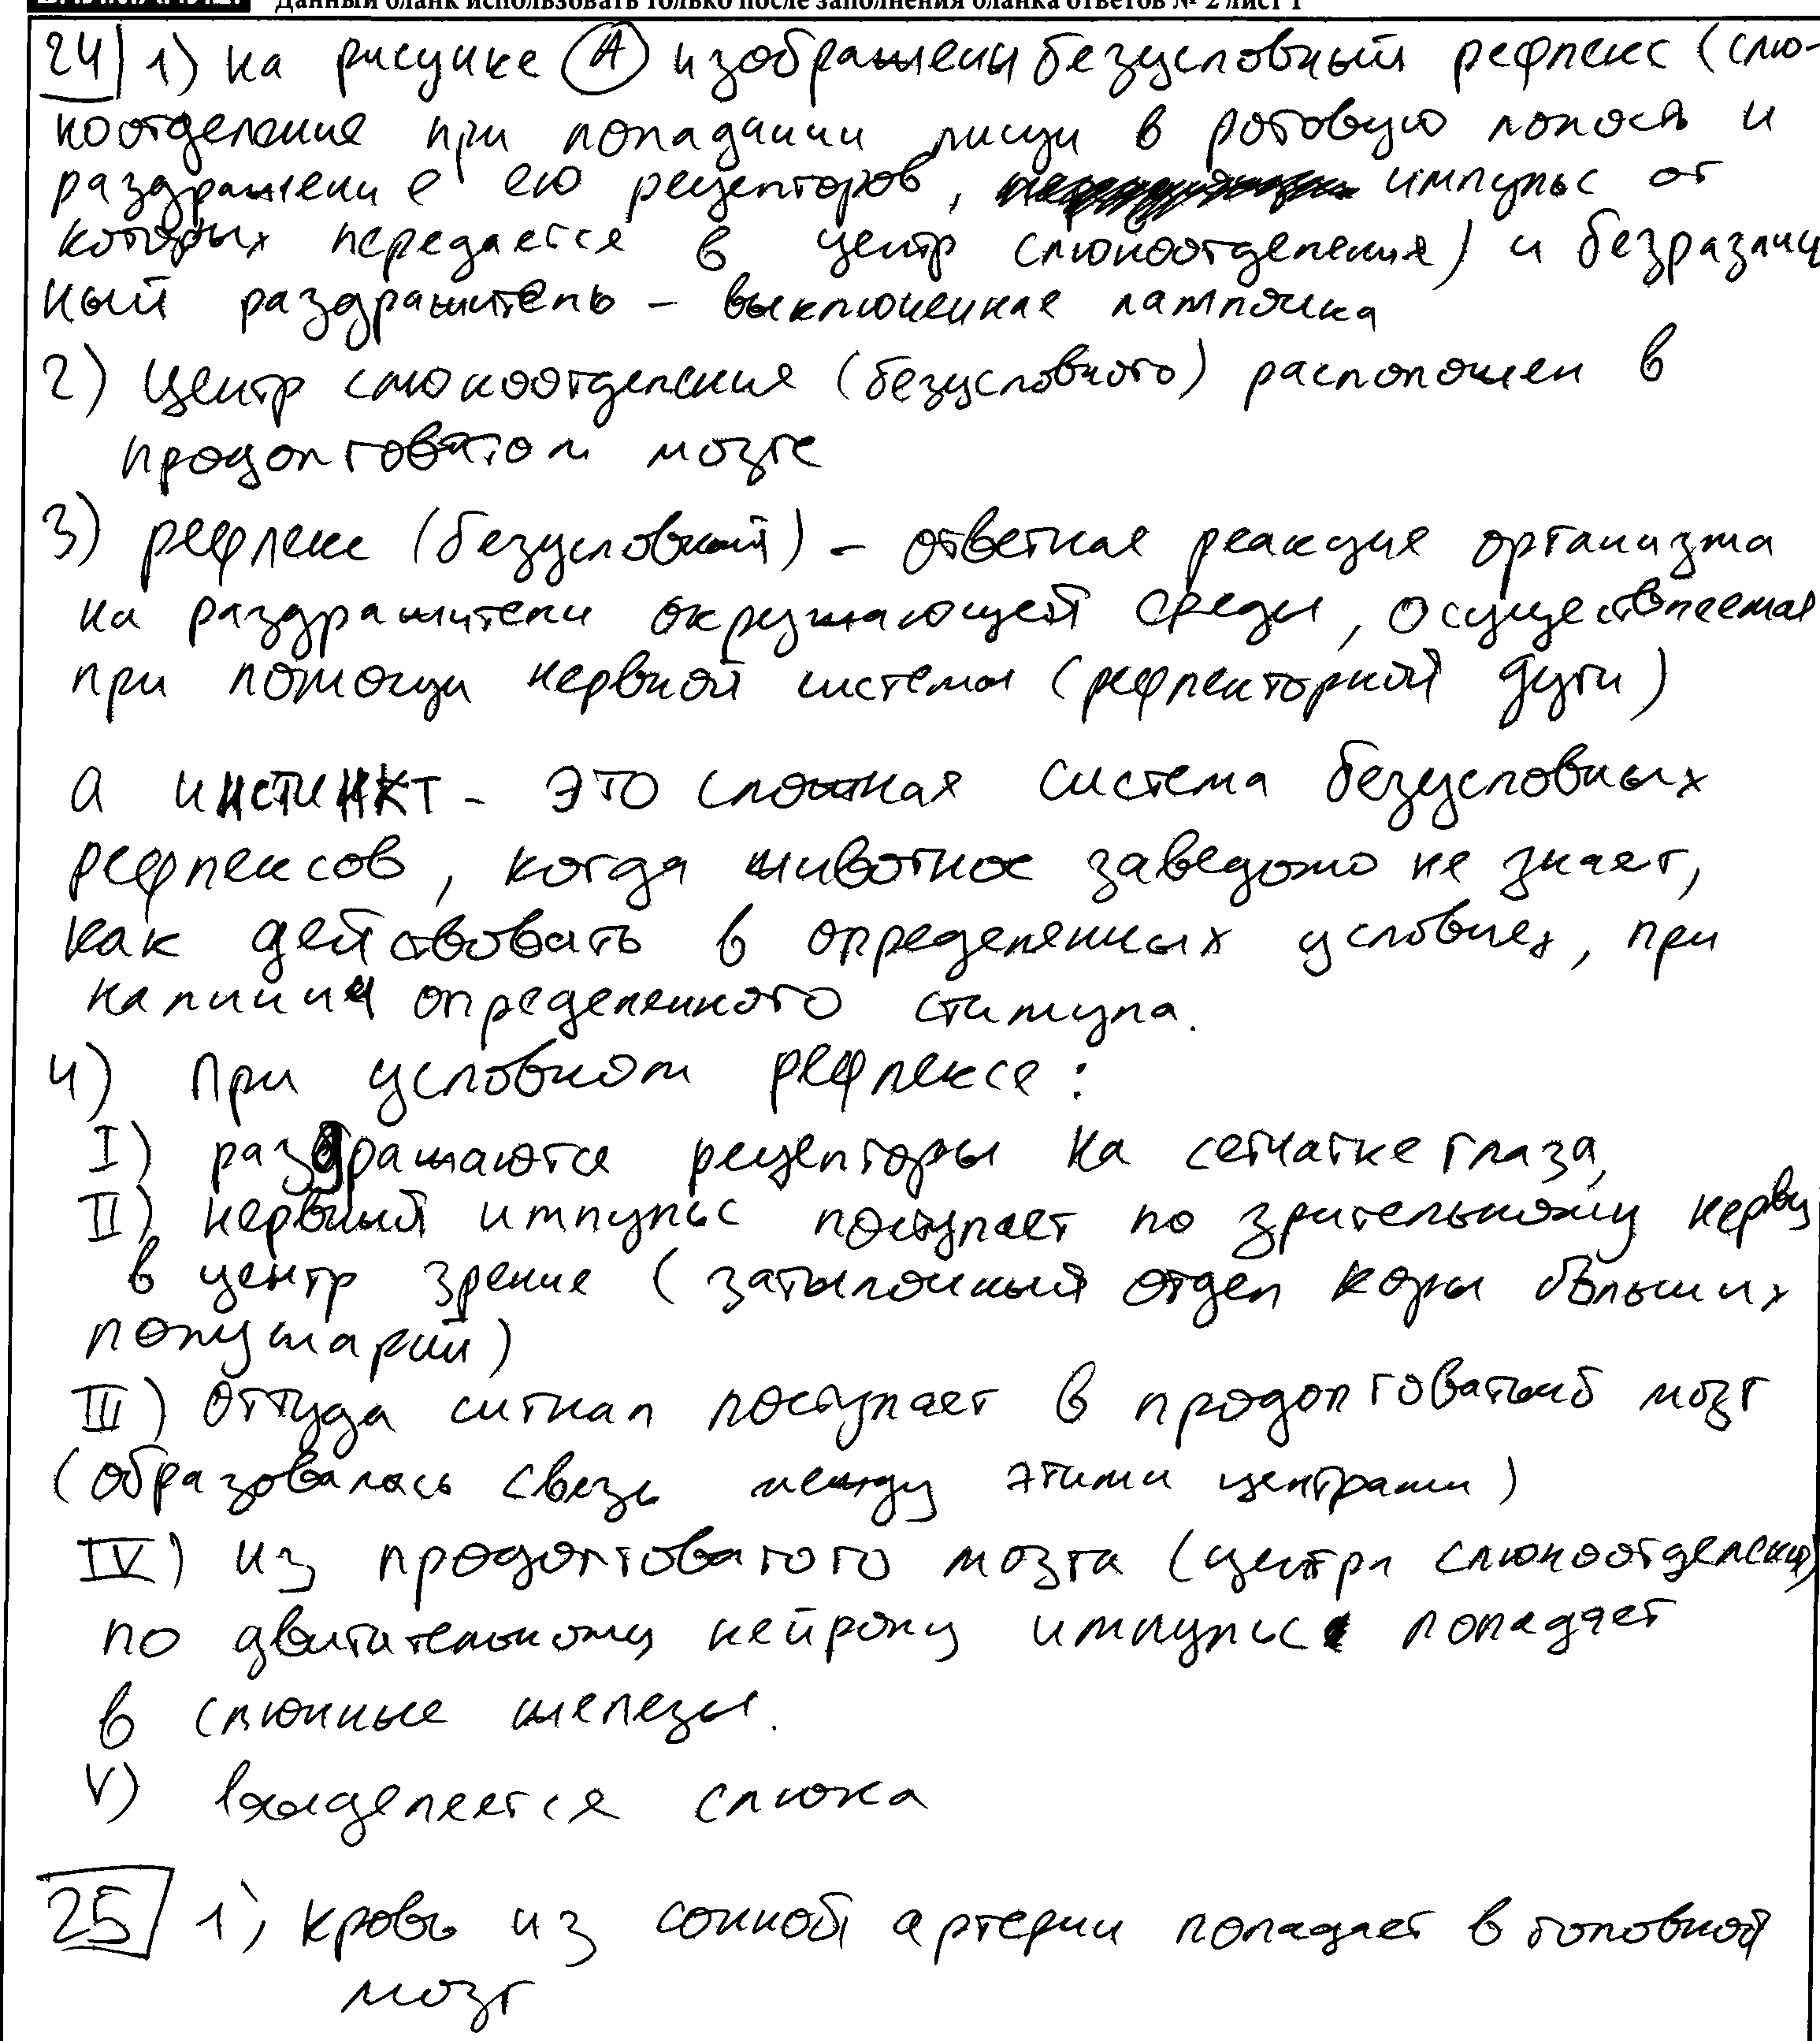 Данный бланк использовать только после заполнения бланка ответов № 2 лист 1
24 1) на рисунке (А) изображены безусловный рефлекс (слю-
ноотделение при попадании пищи в ротовую полость и
раздражение ею рецепторов, импульс от
которых передается в центр слюноотделения) и безразлич
ный раздражитель – выключенная лампочка
2) Центр слюноотделения (безусловного) расположен в
продолговатом мозге
3) рефлекс (безусловный) – ответная реакция организма
на раздражители окружающей среды, осуществляемая
при помощи нервной системы (рефлекторной дуги)
а инстинкт – это сложная система безусловных
рефлексов, когда животное заведомо не знает,
как действовать в определенных условиях, при
наличии определенного стимула.
4) При условном рефлексе:
I) раздражаются рецепторы на сетчатке глаза,
II) нервный импульс поступает по зрительному нерву
в центр зрения (затылочный отдел коры больших
полушарий)
III) Оттуда сигнал поступает в продолговатый мозг
(образовалась связь между этими центрами)
IV) из продолговатого мозга (центра слюноотделения)
по двигательному нейрону импульс попадает
в слюнные железы.
V) выделяется слюна
25 1) кровь из сонной артерии попадает в головной
мозг